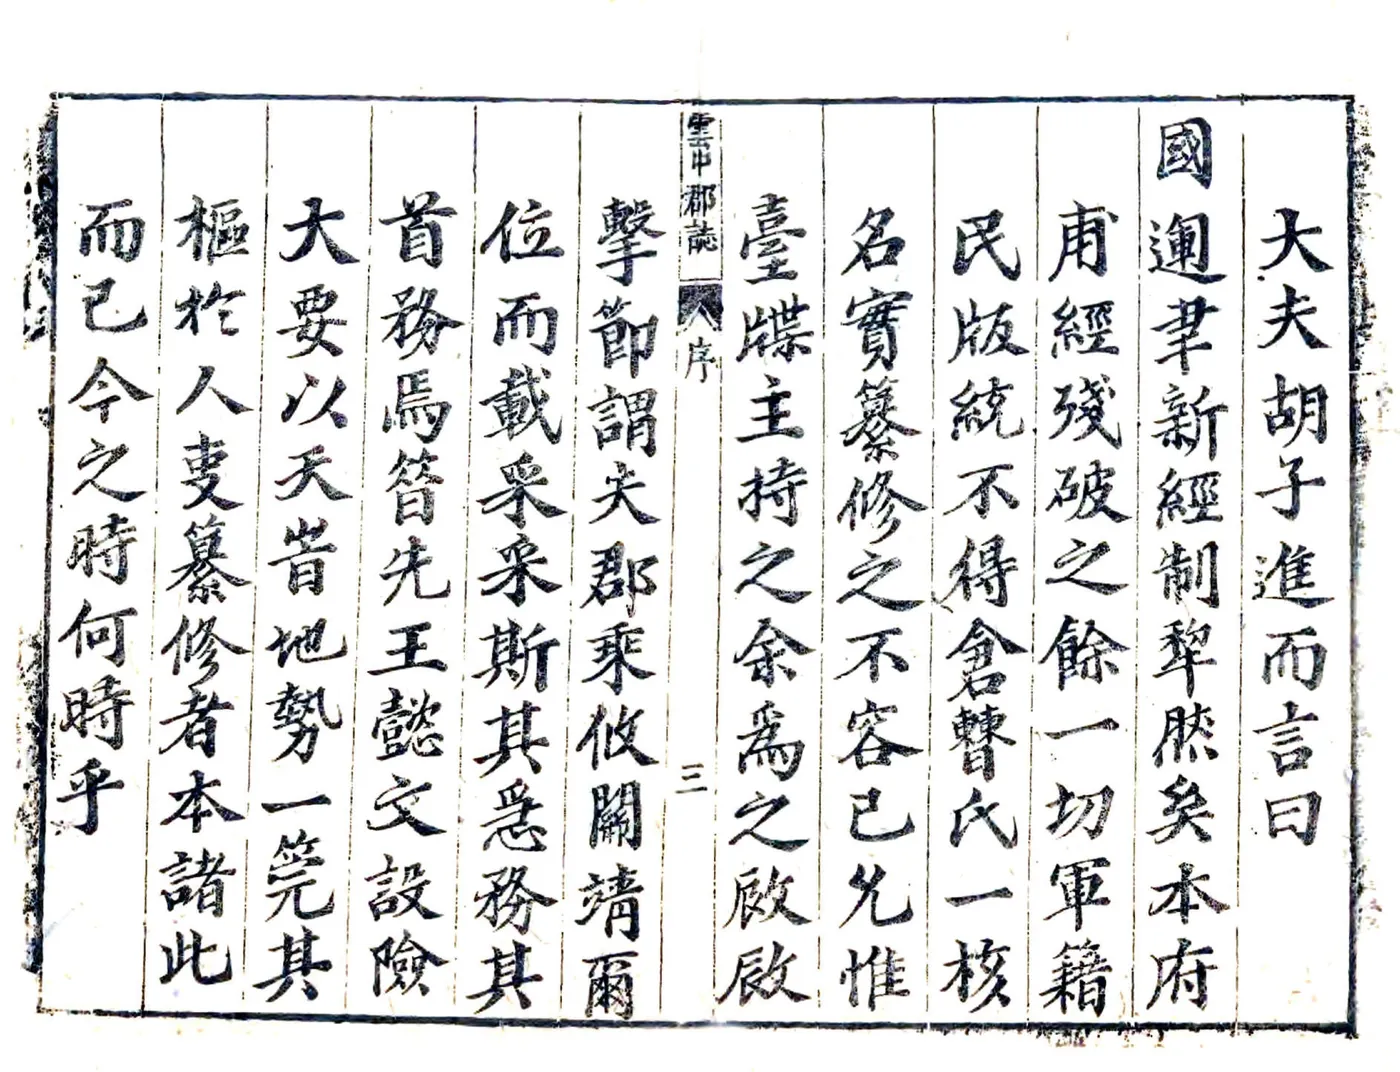 大夫胡子進而言曰
國運聿新經制犂然矣本府
甫經殘破之餘一切軍籍
民版統不得倉瞽氏一核
名實纂修之不容已允惟
臺牒主持之余爲之啟啟
雲中郡誌
序
三
擊節謂夫郡乘攸關靖爾
位而載采采斯其爲務其
首務焉昝先王懿文設險
大要以天旹地勢一筦其
樞於人叓纂修者本諸此
而已今之時何時乎